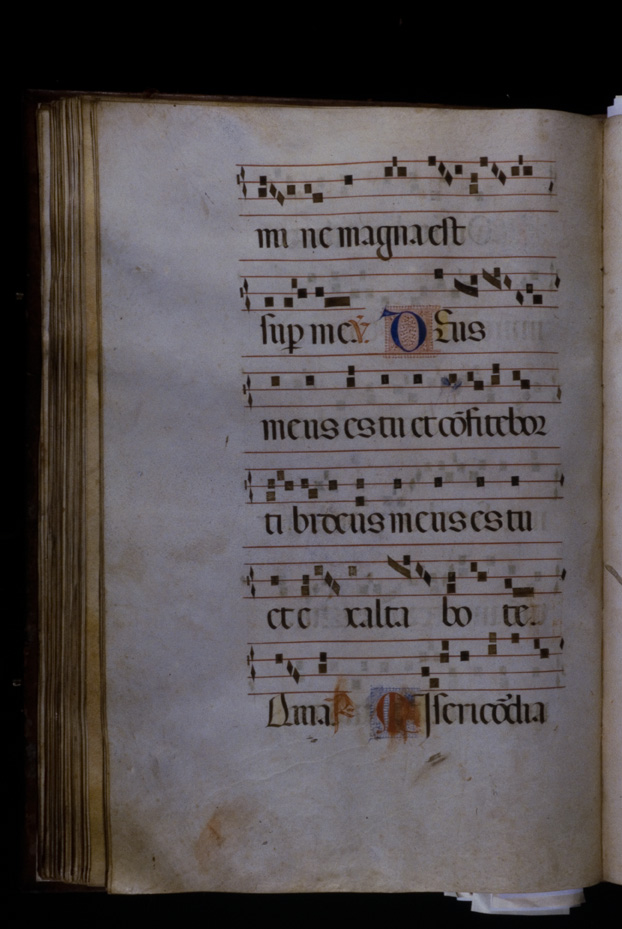 mi ne magna est
sup me ℣ DEus
meus es tu et cōfitebor
ti br deus meus es tu
et e xalta bo te.
Quia ℟ MIsericōdia